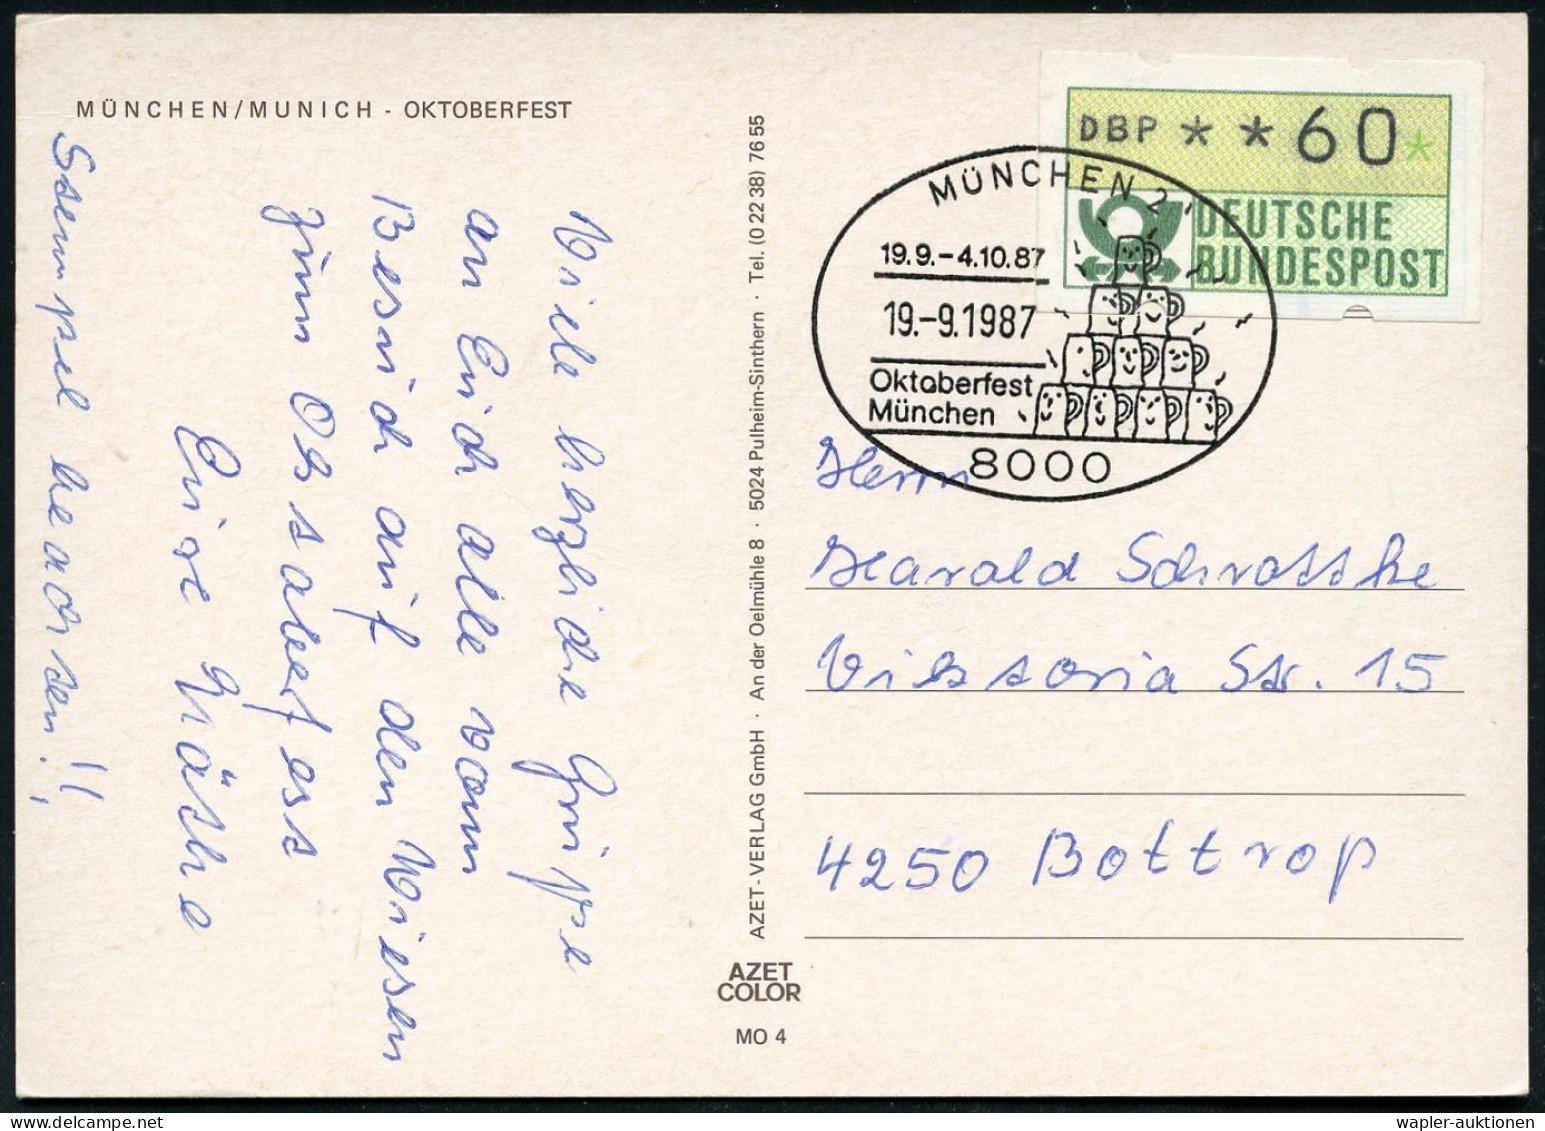 MÜNCHEN/MUNICH - OKTOBERFEST
Viele herzliche Grüße
an Euch alle vom
Besuch auf den Wiesen
zum Oktoberfest
Eure Käthe
Stempel beachten!!
AZET-VERLAG GmbH · An der Oelmühle 8 · 5024 Pulheim-Sinthern · Tel. (0 22 38) 76 55
AZET
COLOR
MO 4
DBP **60*
DEUTSCHE
BUNDESPOST
MÜNCHEN 2
19.9.-4.10.87
19.-9.1987
Oktoberfest
München
8000
Herrn
Harald Schrottke
Viktoria Str. 15
4250 Bottrop
wapler-auktionen